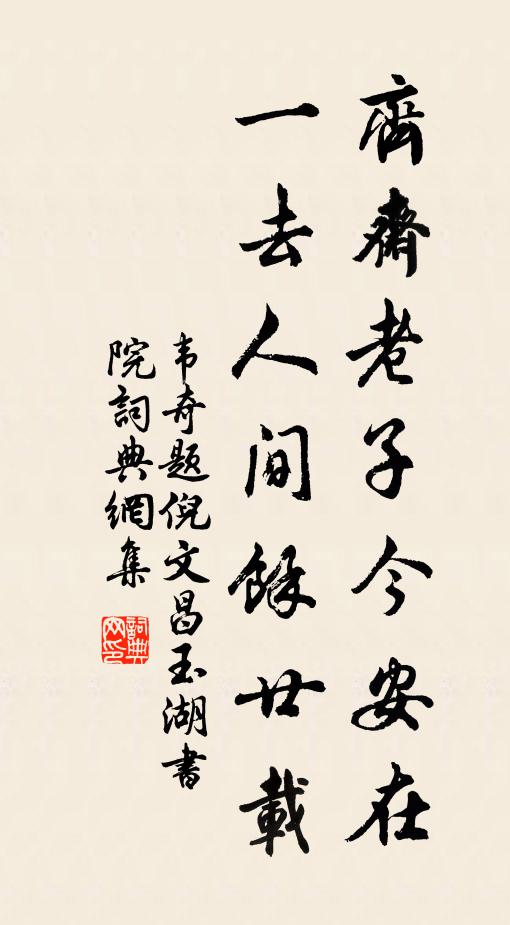 齊齋老子今安在
一去人間餘廿載
韦奇题倪文昌玉湖書
院詞典網集
詞典网印